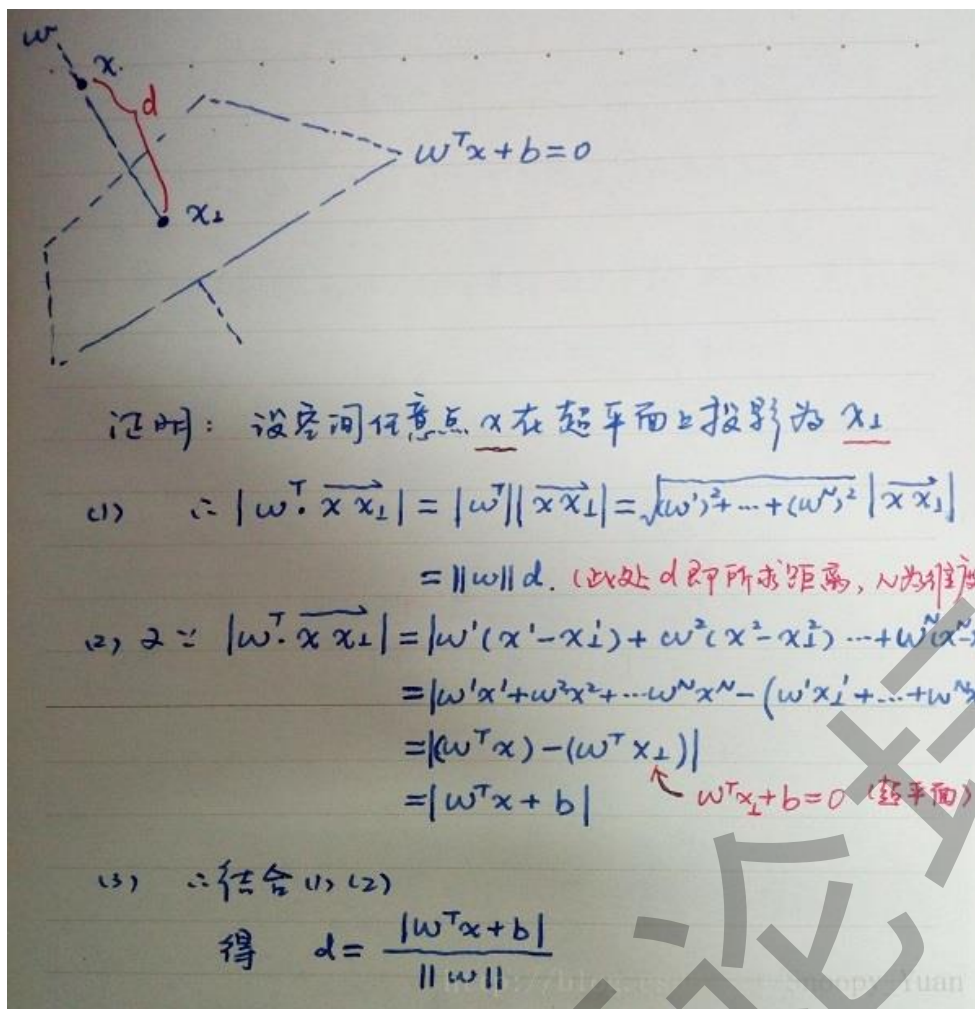 w
x.
d
x⊥
wᵀx+b=0
证明: 设空间任意点 x 在超平面上投影为 x⊥
(1) ∴ |wᵀ·xx⊥| = |wᵀ||xx⊥| = √(w¹)²+…+(wᴺ)² |xx⊥|
= ||w|| d. (此处 d 即所求距离, N为维度
(2) 又∵ |wᵀ·xx⊥| = |w¹(x¹-x⊥¹) + w²(x²-x⊥²) …+wᴺ(xᴺ-
= |w¹x¹+w²x²+…wᴺxᴺ-(w¹x⊥¹+…+wᴺx
= |(wᵀx)-(wᵀx⊥)|
= |wᵀx+b| wᵀx⊥+b=0 (超平面)
(3) ∴结合(1)(2)
得 d= |wᵀx+b| / ||w||
论坛